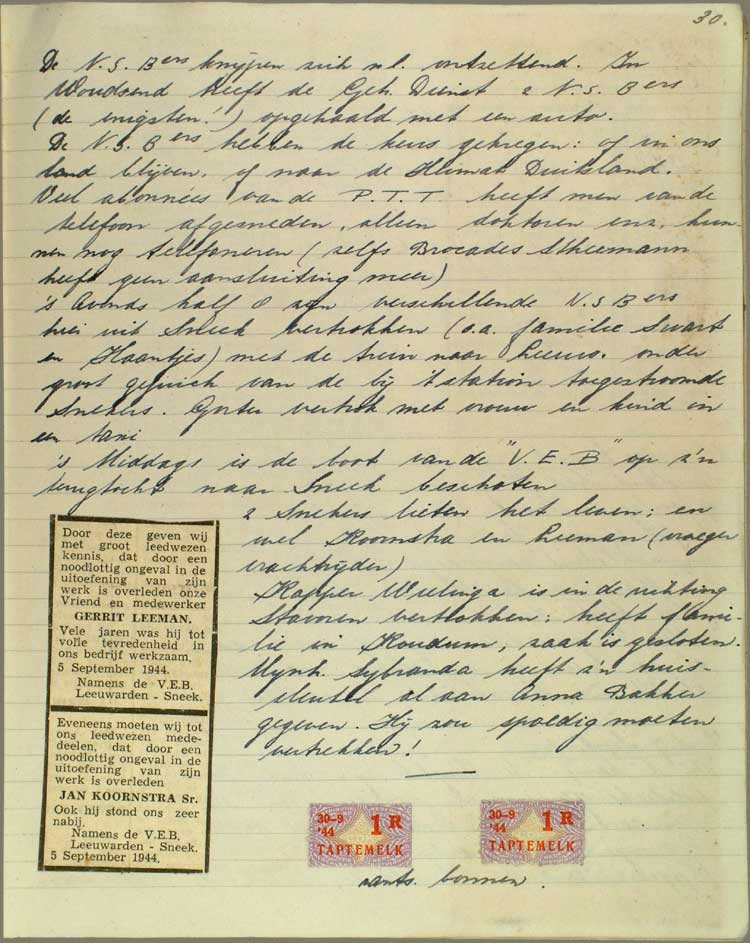 30.
De N.S.Bers knijpen zich n.l. ontzettend. In
Woudsend heeft de Geh. Dienst 2 N.S.Bers
(de enigsten!) opgehaald met een auto.
De N.S.Bers hebben de keus gekregen: of in ons
land blijven, of naar de Heimat Duitsland.
Veel abonnées van de P.T.T. heeft men van de
telefoon afgesneden, alleen doktoren enz. kun-
nen nog telefoneren (zelfs Brocades Stheemann
heeft geen aansluiting meer)
's Avonds half 8 zijn verschillende N.S.Bers
hier uit Sneek vertrokken (o.a. familie Swart
en Haantjes) met de trein naar Leeuw. onder
groot gejuich van de bij 't station toegestroomde
Snekers. Gorter vertrok met vrouw en kind in
een taxi
's Middags is de boot van de "V.E.B" op z'n
terugtocht naar Sneek beschoten
2 Snekers lieten het leven: en
wel Koornstra en Leeman (vroeger
vrachtrijder)
Kapper Wielinga is in de richting
Stavoren vertrokken: heeft fami-
lie in Koudum, zaak is gesloten.
Mijnh. Sybranda heeft z'n huis-
sleutel al aan Anna Bakker
gegeven. Hij zou spoedig moeten
vertrekken!
Door deze geven wij
met groot leedwezen
kennis, dat door een
noodlottig ongeval in de
uitoefening van zijn
werk is overleden onze
Vriend en medewerker
GERRIT LEEMAN.
Vele jaren was hij tot
volle tevredenheid in
ons bedrijf werkzaam.
5 September 1944.
Namens de V.E.B.
Leeuwarden - Sneek.
Eveneens moeten wij tot
ons leedwezen mede-
deelen, dat door een
noodlottig ongeval in de
uitoefening van zijn
werk is overleden
JAN KOORNSTRA Sr.
Ook hij stond ons zeer
nabij.
Namens de V.E.B.
Leeuwarden - Sneek.
5 September 1944.
30-9 '44 1 R
TAPTEMELK
30-9 '44 1 R
TAPTEMELK
rants. bonnen.